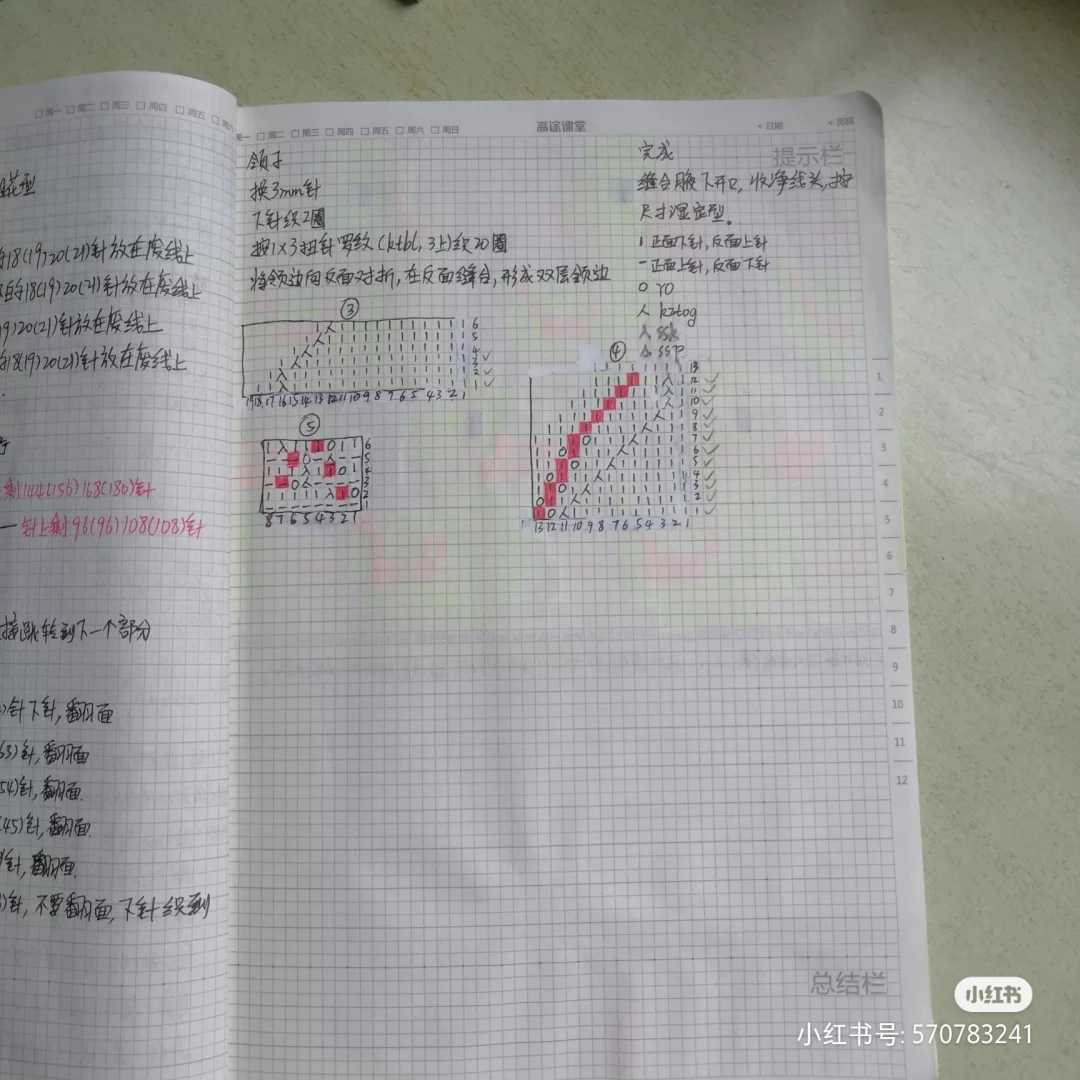 周一 周二 周三 周四 周五
针放在废线上
18(19)20(21)针放在废线上
20(21)针放在废线上
18(19)20(21)针放在废线上
剩144(156)168(180)针
一针上剩96(96)108(108)针
接跳转到下一个部分
针下针,翻面
63)针,翻面
54)针,翻面.
45)针,翻面.
针,翻面.
针,不要翻面,下针织到
周一 周二 周三 周四 周五 周六 周日
高途课堂
日期
领子
换3mm针
下针织2圈
按1×3扭针罗纹(ktbl,3上)织20圈
将领边向反面对折,在反面缝合,形成双层领边
③
6
5
4
3
2
1
19 18 17 16 15 14 13 12 11 10 9 8 7 6 5 4 3 2 1
⑤
6
5
4
3
2
1
8 7 6 5 4 3 2 1
提示栏
完成
缝合腋下开口,收净线头,按
尺寸湿定型。
I 正面下针,反面上针
一 正面上针,反面下针
O YO
人 k2tog
入 ssk
ssp
④
13
12
11
10
9
8
7
6
5
4
3
2
1
13 12 11 10 9 8 7 6 5 4 3 2 1
1
2
3
4
5
6
7
8
9
10
11
12
总结栏
小红书
小红书号: 570783241